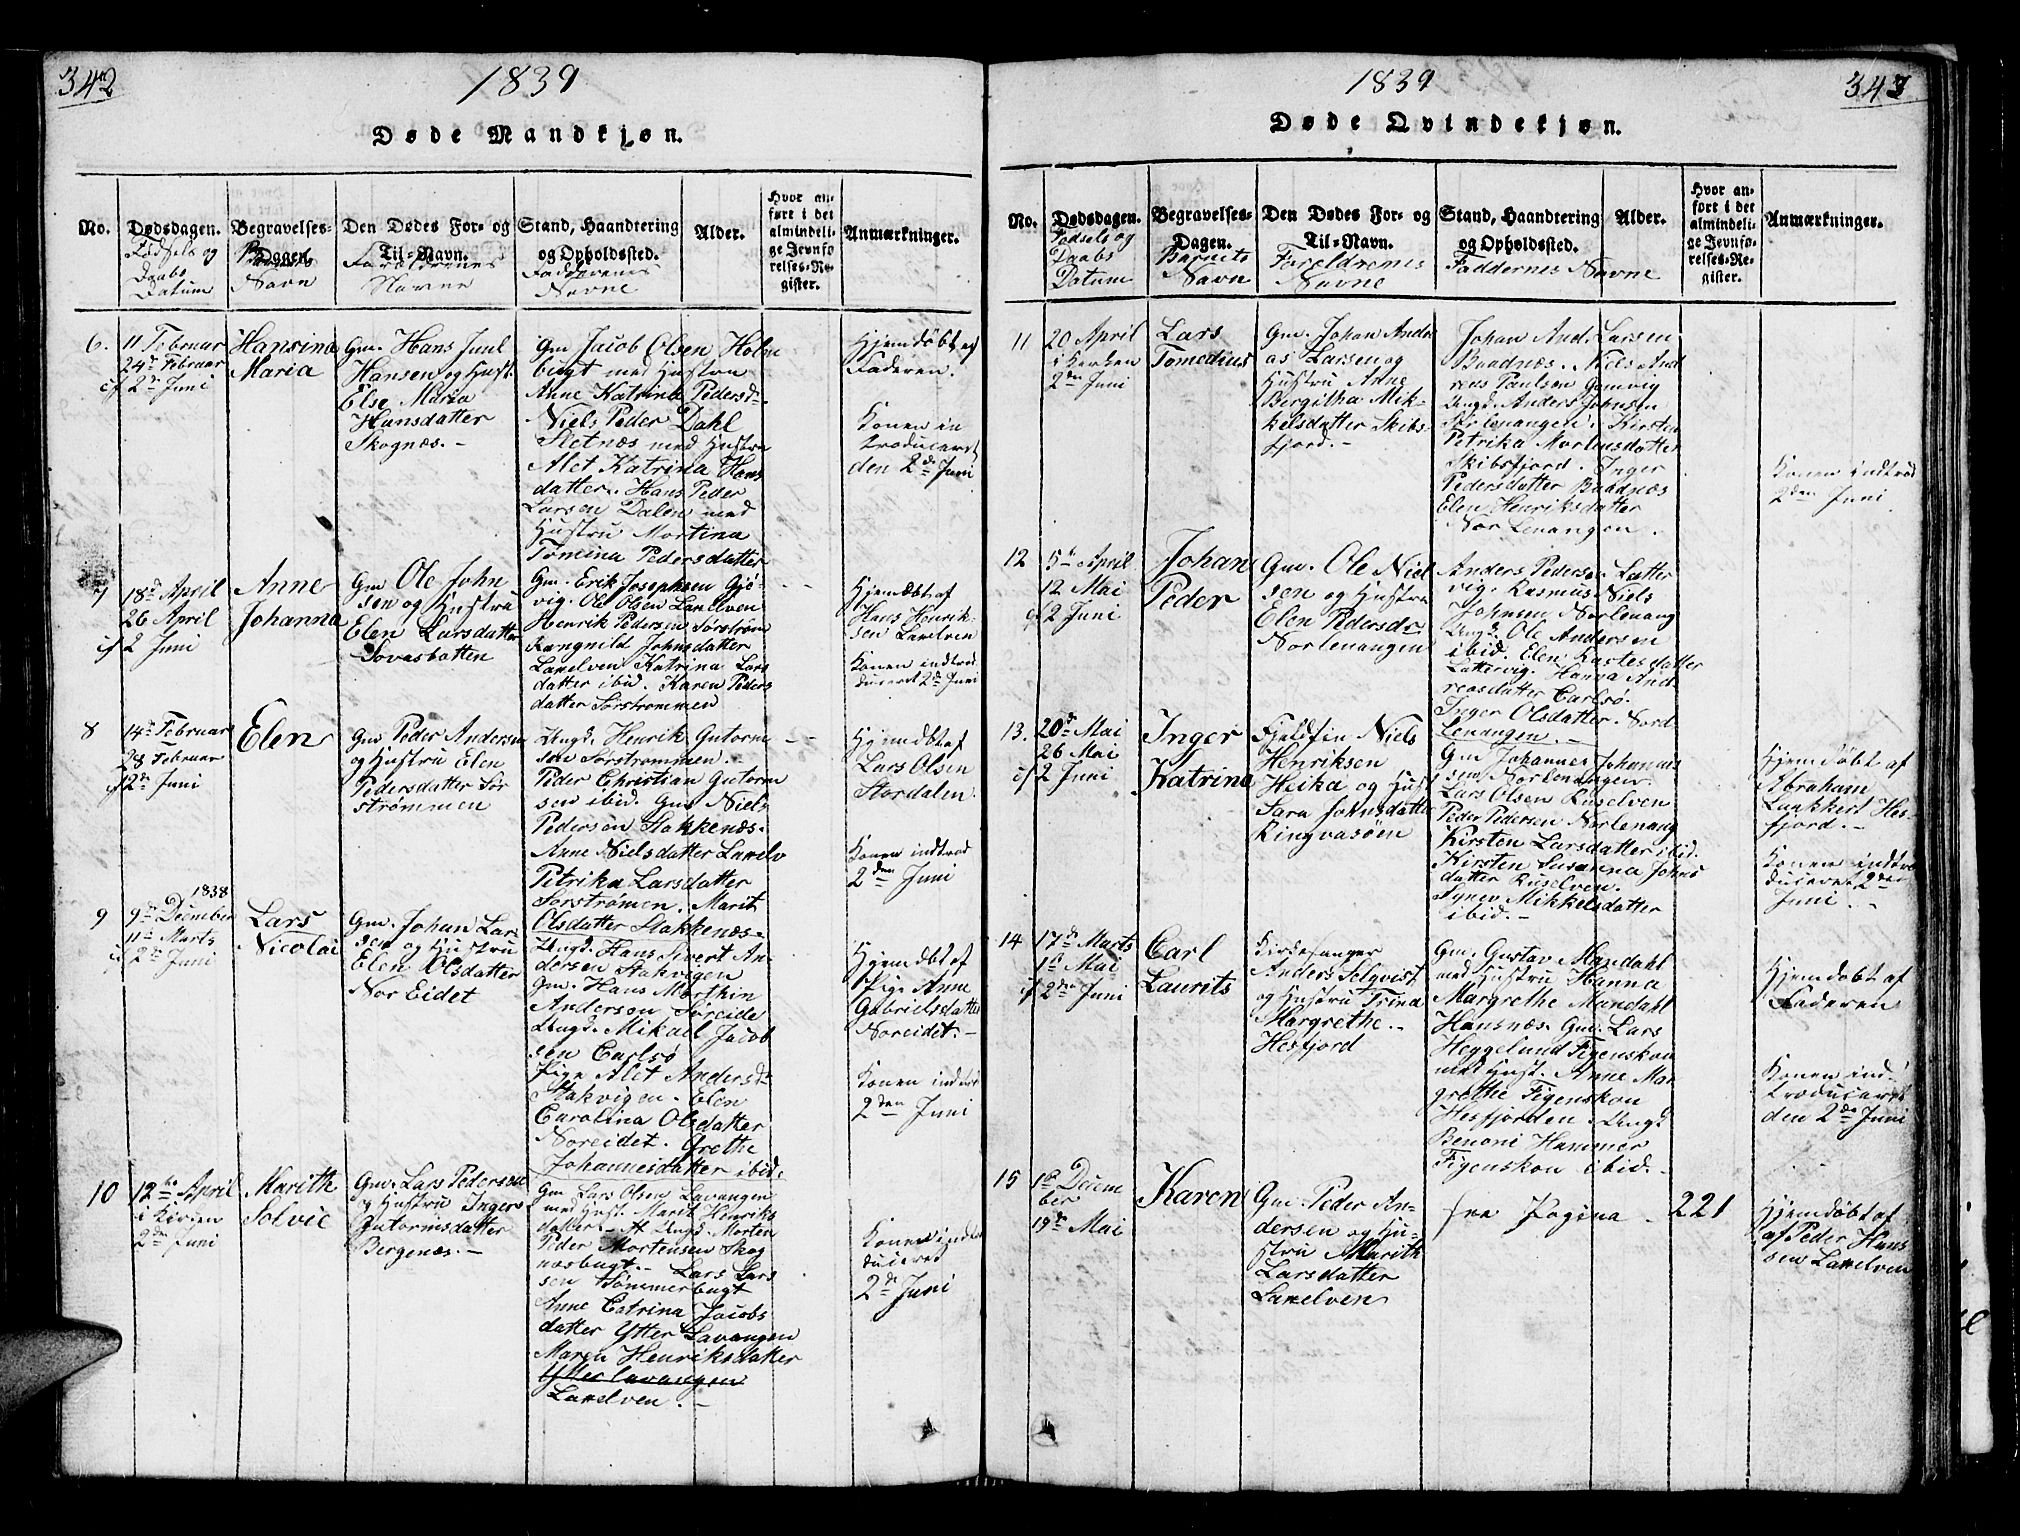 342
1839
Døde Mandkjøn.
No.
Dødsdagen.
Fødsels og
Daabs
Datum
Begravelses-
Dagen.
Barnets
Navn
Den Dødes For- og
Til-Navn.
Forældrenes
Navne
Stand, Haandtering
og Opholdsted.
Faddernes
Navne
Alder.
Hvor an-
ført i det
almindeli-
ge Jevnfø-
relses-Re-
gister.
Anmærkninger.
6.
11 Februar
24de Februar
if 2de Juni
Hansina
Maria
Gm. Hans Juul
Hansen og Hust.
Else Maria
Hansdatter
Skognæs.-
Gm Jacob Olsen Holm
bugt med Hustru
Anne Katrina Pedersd-
Niels Peder Dahl
Sletnæs med Hustru
Alet Katrina Hans
datter. Hans Peder
Larsen Dalen med
Hustru Martina
Tomina Pedersdatter
Hjemdöbt af
Faderen.
Konen in
troduceret
den 2de Juni
7
18de April
26 April
if 2 Juni
Anne
Johanna
Gm Ole John
sen og Hustru
Elen Larsdatter
Sovasbotten
Gm. Erik Josephsen Gjö-
vig. Ole Olsen Laxelven
Henrik Pedersen Sørstrøm
Rangnild Johnsdatter
Laxelven Katrina Lars
datter ibid. Karen Peders
datter Sørstrommen
Hjemdöbt af
Hans Henrik-
sen Laxelven
Konen indtro
duceret 2de Juni
8
14de Februar
28 Februar
if 2de Juni
Elen
Gm Peder Andersen
og Hustru Elen
Pedersdatter Sør
strømmen
Ungd. Henrik Gutorm
sen Sørstrommen.
Peder Christian Gutorm
sen ibid. Gm Niels
Pedersen Stakkenæs.
Anne Nielsdatter Laxelv
Petrika Larsdatter
Sørstrømen. Marit
Olsdatter Stakkenæs-
Hjemdöbt af
Lars Olsen
Stordalen.
Konen indtrod
2den Juni
9
1838
9de December
11te Marts
if 2de Juni
Lars
Nicolai
Gm. Johan Lar
sen og Hustru
Elen Olsdatter
Nor Eidet
Ungd. Hans Sivert An-
dersen Stakvigen
Gm. Hans Marthin
Anderson Søreide
Ungd. Mikael Jacob
sen Carlsø
Pige Alet Andersd-
Stakvigen. Elen
Carolina Olsdatter
Noreidet. Grethe
Johannesdatter ibid.
Hjemdöbt af
Pige Anne
Gabrielsdatter
Noreidet.-
Konen indtrod
2den Juni
10
12te April
i Kirken
2de Juni
Marith
Solvie
Gm. Lars Pedersen
og Hustru Inger
Gutormsdatter
Bergenæs.-
Gm Lars Olsen Lavangen
med Hust. Marit Henriks
datter - A Ungd. Morten
Peder Mortensen Skog
næsbugt.- Lars Lars
sen Sömmerbugt
Anne Catrina Jacobs
datter Ytter Lavangen
Maren Henriksdatter
Ytter Lavangen
Laxelven.-
Konen indtro
duceret
2de Juni
1839
343
Døde Qvindekjøn.
No.
Dødsdagen.
Fødsels og
Daabs
Datum
Begravelses-
Dagen.
Barnets
Navn
Den Dødes For- og
Til-Navn.
Forældrenes
Navne
Stand, Haandtering
og Opholdsted.
Faddernes Navne
Alder.
Hvor an-
ført i det
almindeli-
ge Jevnfø-
relses-Re-
gister.
Anmærkninger.
11
20 April
i Kirken
2den Juni
Lars
Tomedius
Gm. Johan Andre
as Larsen og
Hustru Anne
Bergitha Mik-
kelsdatter Skibs-
fjord.-
Johan And. Larsen
Baadnæs. Niels And
reas Paulsen Gamvig
Ungd. Anders Johnsen
Sørlenangen. Kirsten
Petrika Mortensdatter
Skibsfjord. Inger
Pedersdatter Baadnæs
Elen Henriksdatter
Nor Lenangen.
Konen indtrod
2den Juni
12
5te April
12 Mai
if 2 Juni
Johan
Peder
Gm. Ole Niel
sen og Hustru
Elen Pedersdr
Norlenangen
Anders Pedersen Latter
vig. Rasmus Niels
Johnsen Norlenang
Ungd. Ole Andersen
ibid. Elen Kastesdatter
Lattervig. Hanna And
reasdatter Carlsø.
Inger Olsdatter. Nord
Lenangen.-
13.
20de Mai
26 Mai
if 2 Juni
Inger
Katrina
Fjeldfin Niels
Henriksen
Heika og Hust
Sara Johnsdatter
Ringvasöen
Gm Johannes Johannes
sen Norlenangen.
Lars Olsen Ruselven
Peder Pedersen Norlenang
Kirsten Larsdatter ibid.
Kirsten Susanna Johns
datter Ruselven.
Synev Mikkelsdatter
ibid.-
Hjemdöbt af
Abraham
Laukkert Hes-
fjord.-
Konen indtro
duceret 2den
Juni.-
14
17de Marts
1te Mai
if 2den Juni
Carl
Laurits
Kirkesanger
Anders Selqvist
og Hustru Trina
Margrethe.-
Hesfjord
Gm. Gustav Mandahl
med Hustru Hanna
Margrethe Mandahl
Hansnæs. Gm. Lars
Heggelund Figenskou
med Hust. Anne Mar
grethe Figenskou
Hesfjorden Ungd
Benoni Hammer
Figenskou ibid.-
Hjemdöbt af
Faderen
Konen ind-
troduceret
den 2de Juni
15
1te Decem
ber
19de Mai
Karen
Gm. Peder An-
dersen og Hu-
stru Marith
Larsdatter
Laxelven
see Pagina.
221
Hjemdöbt af
af Peder Hans
sen Laxelven